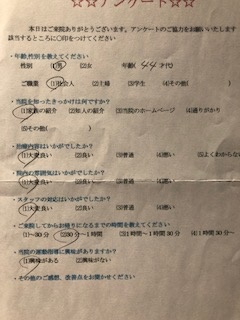 ☆☆アンケート☆☆
本日はご来院ありがとうございます。アンケートのご協力をお願いいたします
該当するところに○印をつけてください
・年齢,性別を教えてください
性別 (1)男 (2)女 年齢( 44 才代)
ご職業 (1)社会人 (2)主婦 (3)学生 (4)その他( )
・当院を知ったきっかけは何ですか?
(1)家族の紹介 (2)知人の紹介 (3)当院のホームページ (4)通りがかり
(5)その他( )
・治療内容はいかがでしたか?
(1)大変良い (2)良い (3)普通 (4)悪い (5)よくわからない
・院内の雰囲気はいかがでしたか?
(1)大変良い (2)良い (3)普通 (4)悪い
・スタッフの対応はいかがでしたか?
(1)大変良い (2)良い (3)普通 (4)悪い
・ご来院してからお帰りになるまでの時間を教えてください
(1)~30分 (2)30分~1時間 (3)1時間~1時間30分 (4)1時間30分
・当院の運動指導に興味がありますか?
(1)興味がある (2)興味がない
・その他のご感想、改善点をお聞かせください